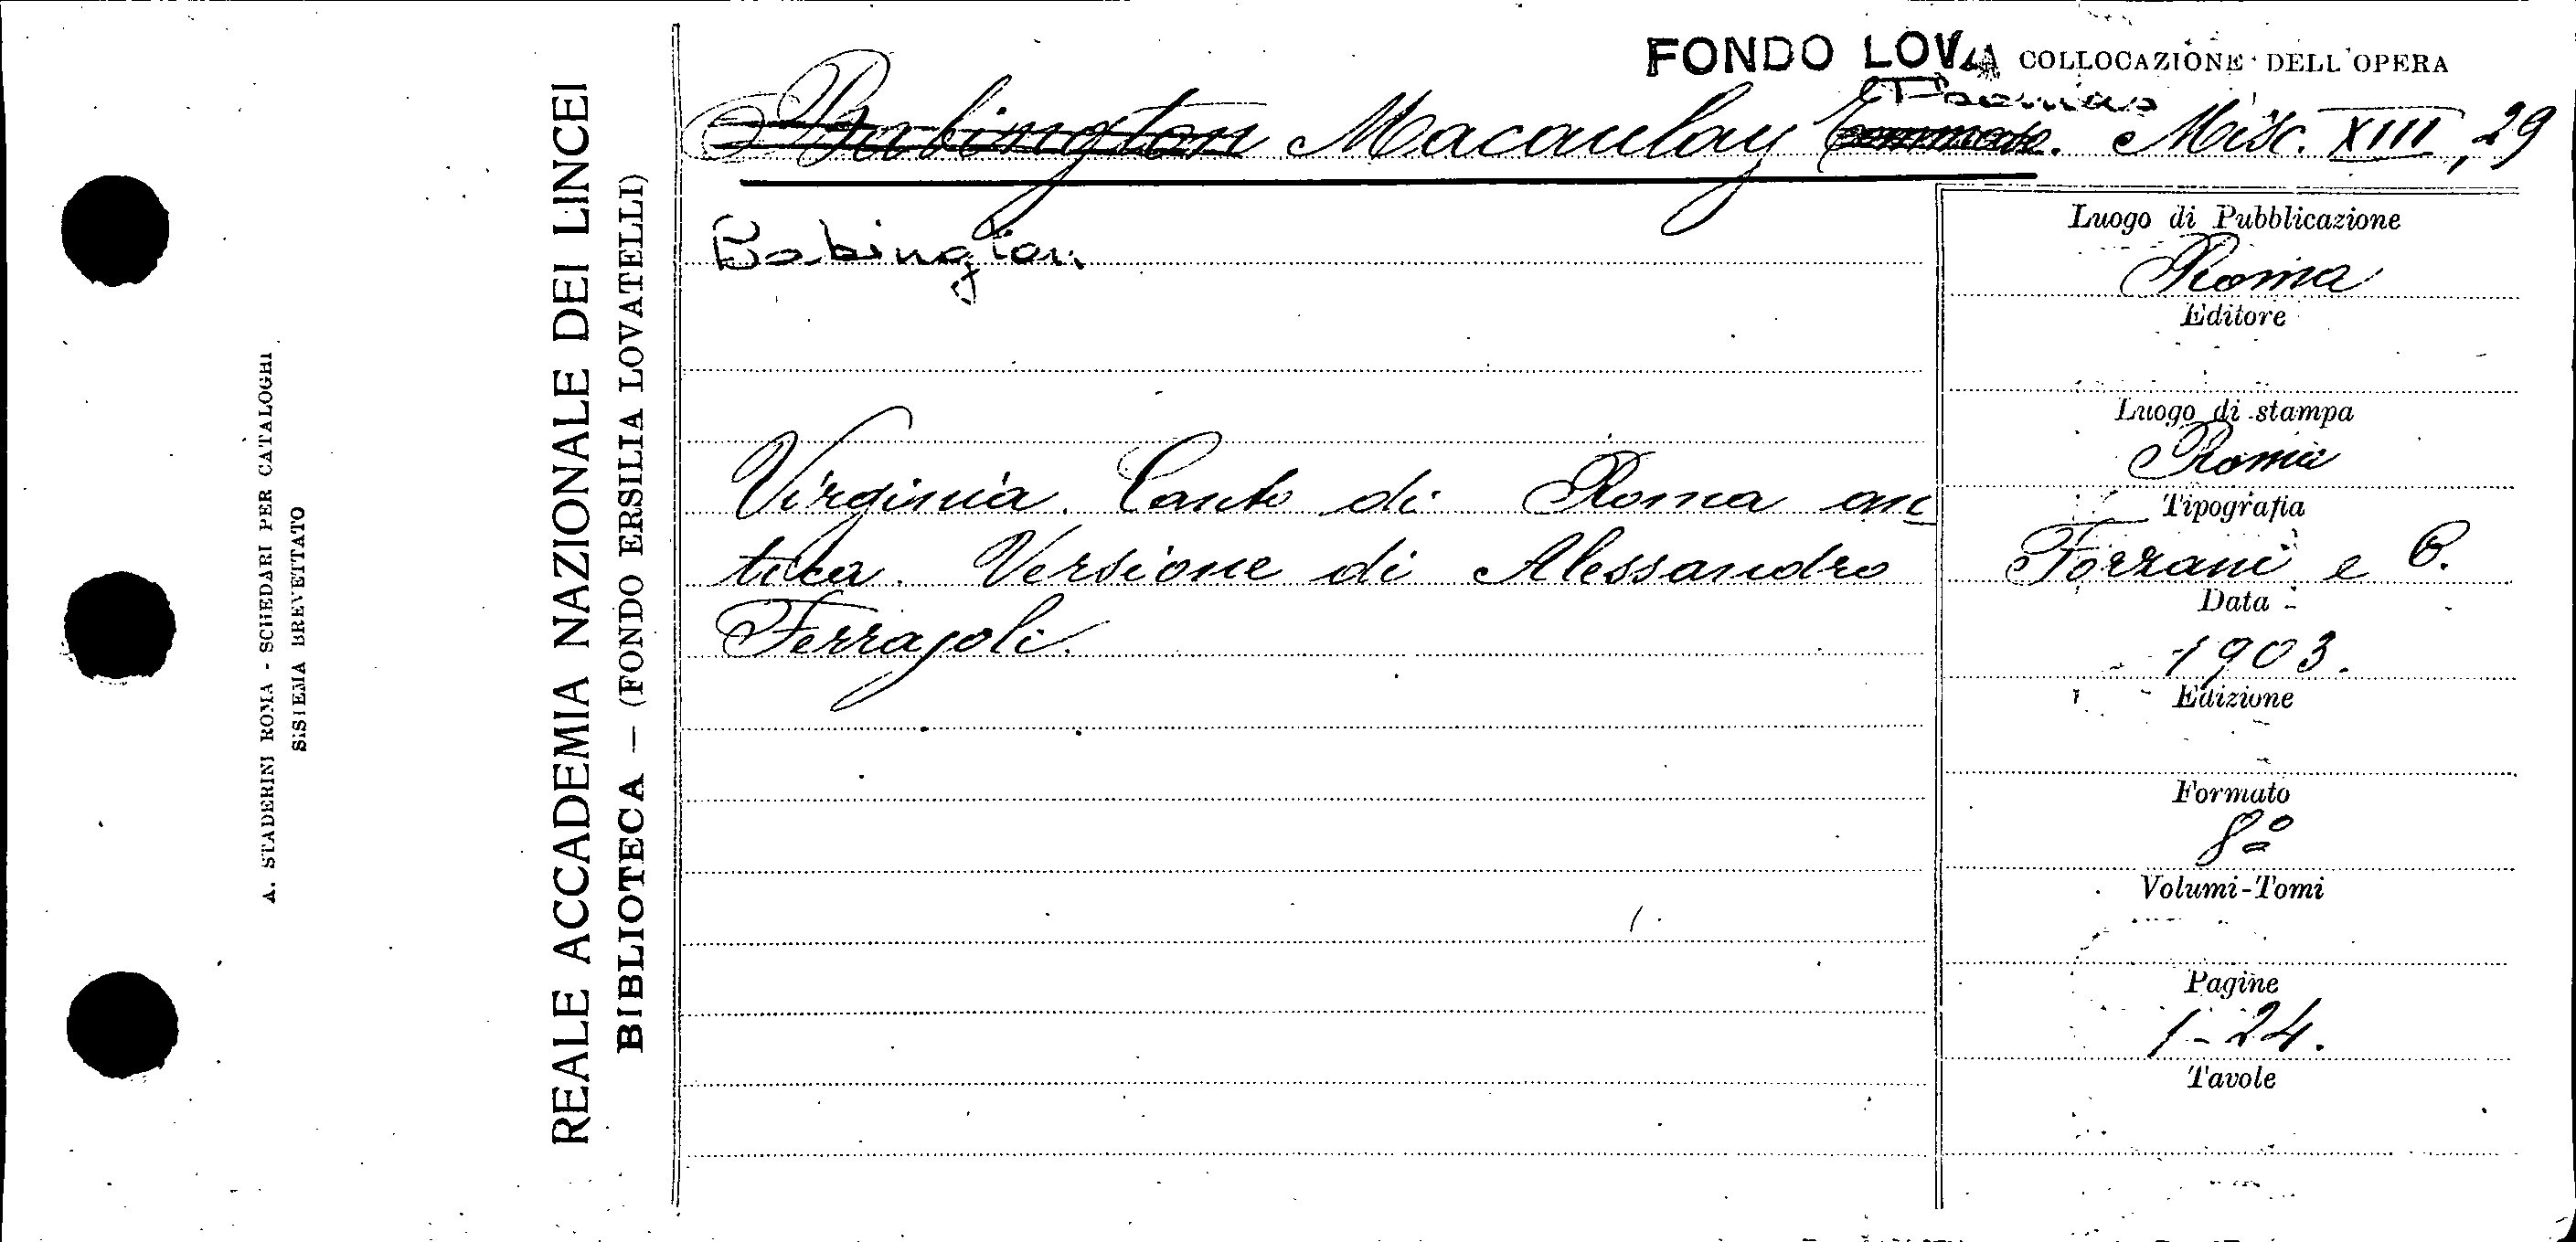 FONDO LOVA COLLOCAZIONE DELL'OPERA
Babington Macaulay Thomas Misc. XIII, 29
Babington
Virginia. Canto di Roma an
tica. Versione di Alessandro
Ferrajoli.
Luogo di Pubblicazione
Roma
Editore
Luogo di stampa
Roma
Tipografia
Forzani e C.
Data
1903.
Edizione
Formato
8°
Volumi-Tomi
Pagine
1-24.
Tavole
REALE ACCADEMIA NAZIONALE DEI LINCEI
BIBLIOTECA — (FONDO ERSILIA LOVATELLI)
A. STADERINI ROMA - SCHEDARI PER CATALOGHI
SISTEMA BREVETTATO